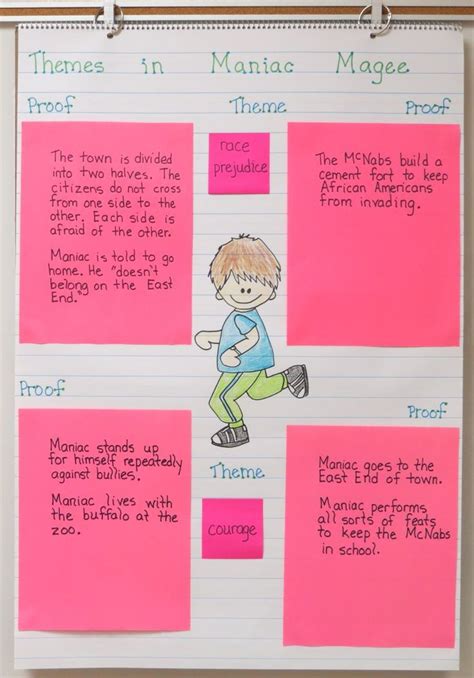 Themes in Maniac Magee
Proof
Theme
Proof
The town is divided
into two halves. The
citizens do not cross
from one side to the
other. Each side is
afraid of the other.
Maniac is told to go
home. He "doesn't
belong on the East
End."
race
prejudice
The McNabs build a
cement fort to keep
African Americans
from invading.
Proof
Theme
Proof
Maniac stands up
for himself repeatedly
against bullies.
Maniac lives with
the buffalo at the
zoo.
courage
Maniac goes to the
East End of town.
Maniac performs
all sorts of feats
to keep the McNabs
in school.